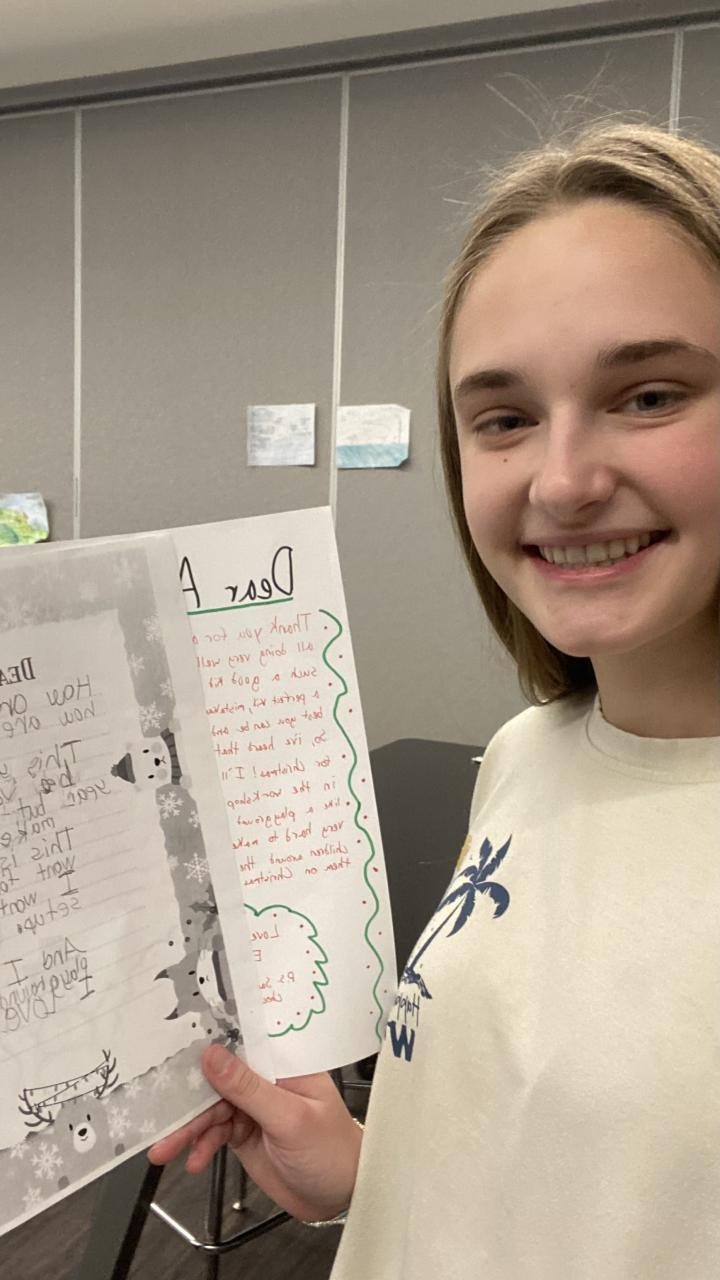 Dear A
Thank you for a
all doing very well
such a good kid
a perfect kid, mistakes
best you can be and
So, I've heard that
for Christmas! I'll
in the workshop
like a playground
very hard to make
children around the
them on Christmas
Love
E
P.S.
DEA
How
how are
This
year but
make
This is
want to
I want
setup.
And I
playground
I Love
Happ
W